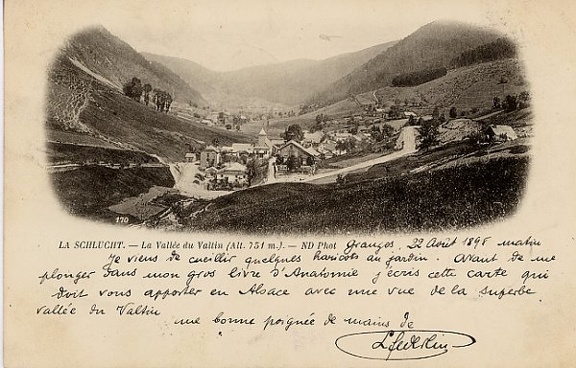 170
LA SCHLUCHT. — La Vallée du Valtin (Alt. 751 m.). — ND Phot Granges, 22 Août 1898 matin
Je viens de cueillir quelques haricots au jardin. Avant de me
plonger dans mon gros livre d'Anatomie j'écris cette carte qui
doit vous apporter en Alsace avec une vue de la superbe
vallée du Valtin une bonne poignée de mains de